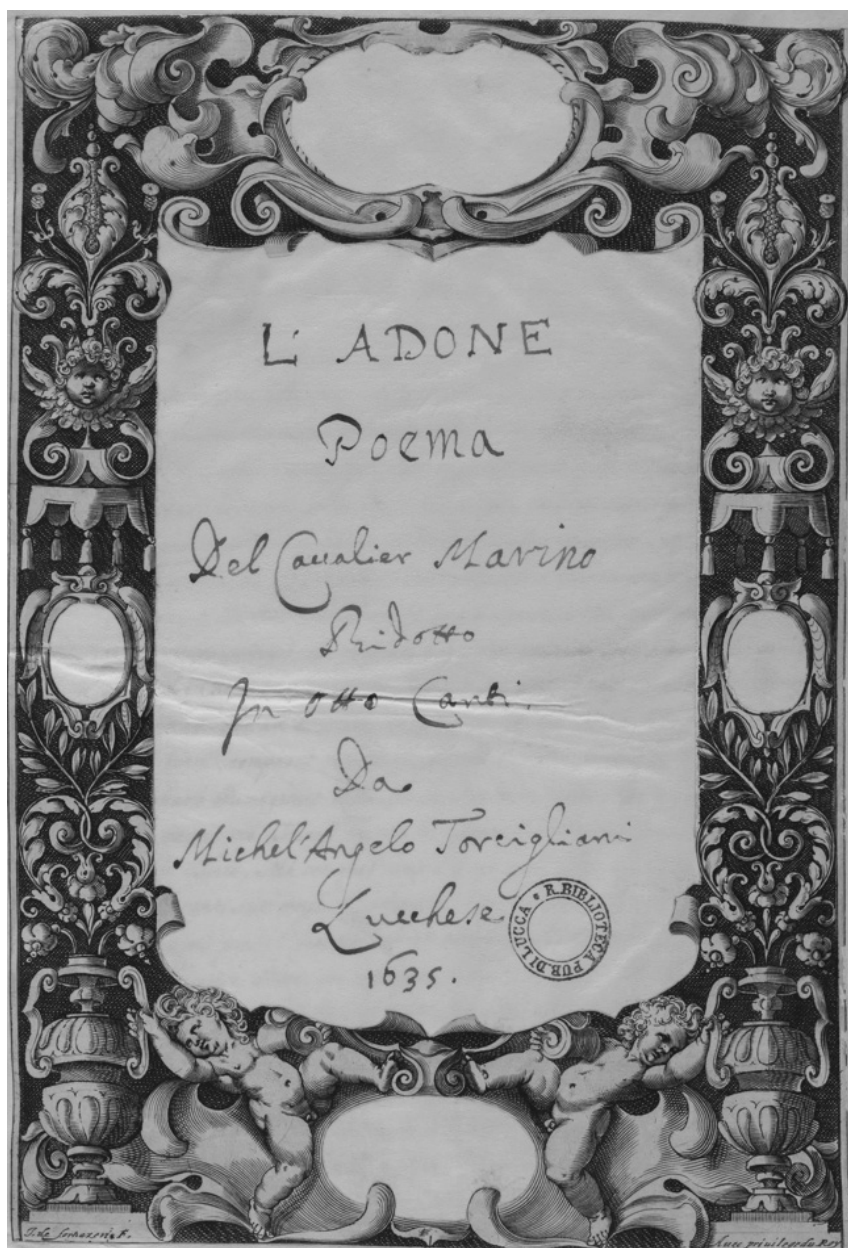 L' ADONE
Poema
Del Caualier Marino
Ridotto
In otto Canti.
Da
Michel'Angelo Torcigliani
Lucchese
1635.
R. BIBLIOTECA PUB. DI LUCCA
Auec priuilege du Roy